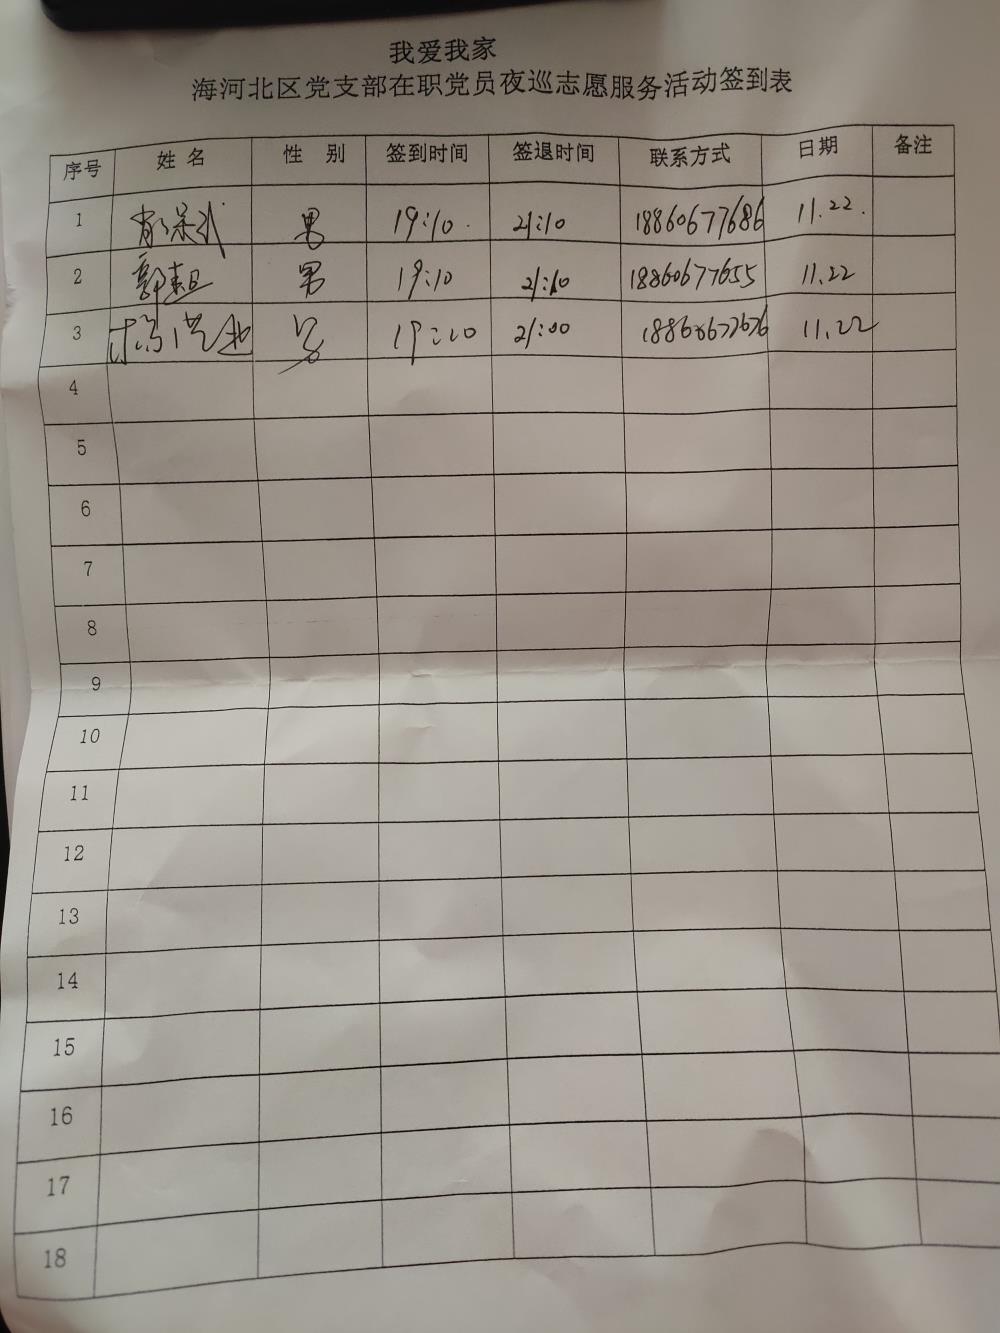 我爱我家
海河北区党支部在职党员夜巡志愿服务活动签到表
序号 姓名 性别 签到时间 签退时间 联系方式 日期 备注
1 男 19:10 21:10 18860677686 11.22.
2 男 19:10 21:10 18860677655 11.22
3 男 19:00 21:00 11.22
4
5
6
7
8
9
10
11
12
13
14
15
16
17
18